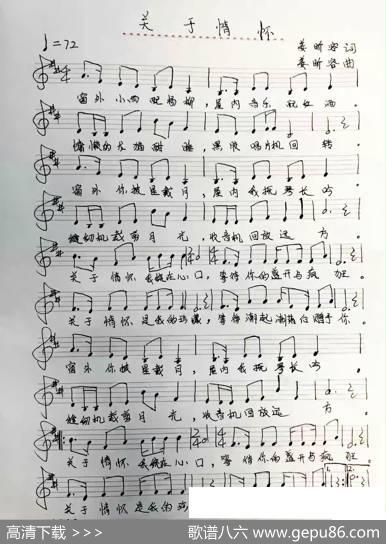 关于情怀
♩=72
姜昕容 词
姜昕容 曲
窗外小雨配杨柳，屋内音乐配红酒。
慵懒的长猫酣睡，黑胶唱片机回转。
窗外你披星戴月，屋内我抚琴长吟。
缝纫机裁剪月光，收音机回放远方。
关于情怀我绕在心口，等待你的盛开与疯狂。
关于情怀是我的珍藏，等待潮起潮落任
窗外你披星戴月，屋内我抚琴长吟。
缝纫机裁剪月光，收音机回放远方。
关于情怀我绕在心口，等待你的盛开与疯狂。
关于情怀是我的珍
高清下载 >>>
歌谱八六 www.gepu86.com